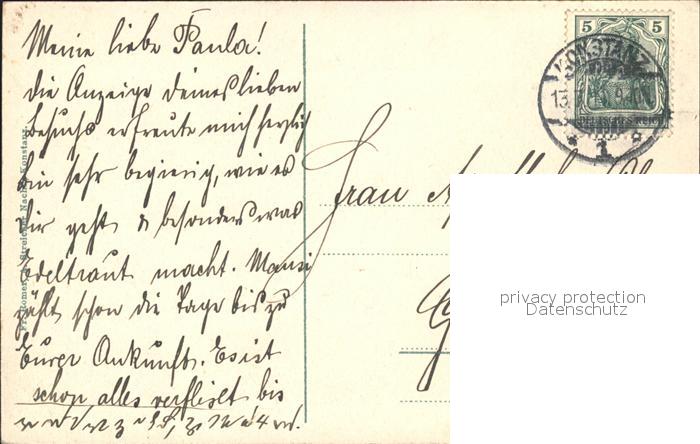 Meine liebe Paula!
die Anzeige deines lieben
Besuchs erfreute mich herzlich
bin sehr begierig, wie es
Dir geht & besonders was
Edeltraut macht. Mausi
zählt schon die Tage bis zu
Eurer Ankunft. Es ist
schon alles verfliest bis
Frau
5 5
DEUTSCHES REICH
KONSTANZ
13.
1
privacy protection
Datenschutz